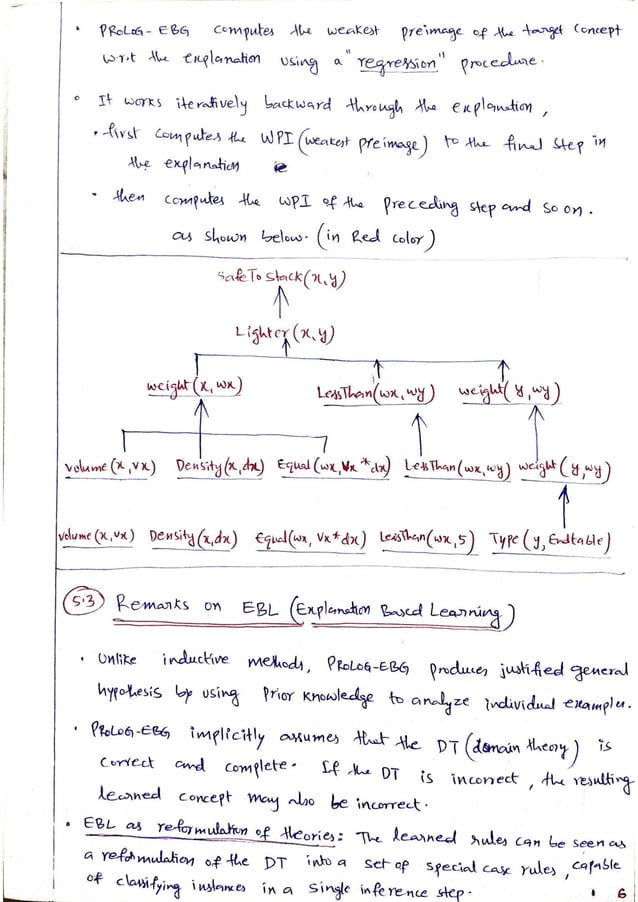 • PROLOG-EBG computes the weakest preimage of the target concept
w.r.t the explanation using a "regression" procedure.
• It works iteratively backward through the explanation,
• first computes the WPI (weakest preimage) to the final step in
the explanation
• then computes the WPI of the preceding step and so on.
as shown below. (in Red color)
SafeToStack(x,y)
Lighter(x,y)
weight(x,wx) LessThan(wx,wy) weight(y,wy)
volume(x,vx) Density(x,dx) Equal(wx,Vx*dx) LessThan(wx,wy) weight(y,wy)
volume(x,vx) Density(x,dx) Equal(wx,Vx*dx) LessThan(wx,5) Type(y,Endtable)
5.3 Remarks on EBL (Explanation Based Learning)
• Unlike inductive methods, PROLOG-EBG produces justified general
hypothesis by using prior knowledge to analyze individual examples.
• PROLOG-EBG implicitly assumes that the DT (domain theory) is
correct and complete. If the DT is incorrect, the resulting
learned concept may also be incorrect.
• EBL as reformulation of theories: The learned rules can be seen as
a reformulation of the DT into a set of special case rules, capable
of classifying instances in a single inference step.
6